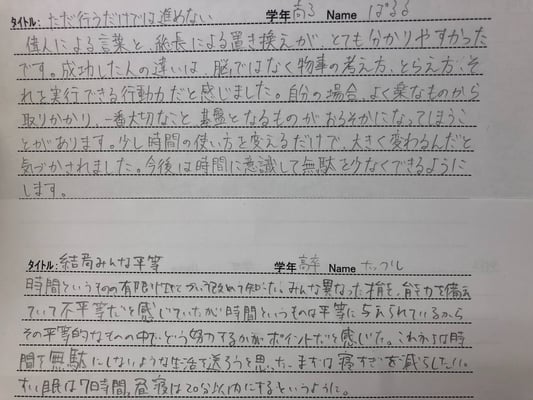 タイトル: ただ行うだけでは進めない 学年 高3 Name ぱるる
偉人による言葉と、総長による置き換えが、とても分かりやすかった
です。成功した人の違いは、脳ではなく物事の考え方、とらえ方、そ
れを実行できる行動力だと感じました。自分の場合、よく楽なものから
取りかかり、一番大切なこと、基盤となるものがおろそかになってしまうこ
とがあります。少し時間の使い方を変えるだけで、大きく変わるんだと
気づかされました。今後は時間に意識して無駄を少なくできるように
します。
タイトル: 結局みんな平等 学年 高卒 Name たっつん
時間というものの有限性について改めて知った。みんな異なった才能、能力を備え
ていて不平等だと感じていたが時間というものは平等に与えられているから
その平等的なものの中でどう努力するかがポイントだと感じた。これからは時
間を無駄にしないような生活を送ろうと思った。まずは寝すぎを減らしたい。
すい眠は7時間、昼寝は20分以内にするというように。